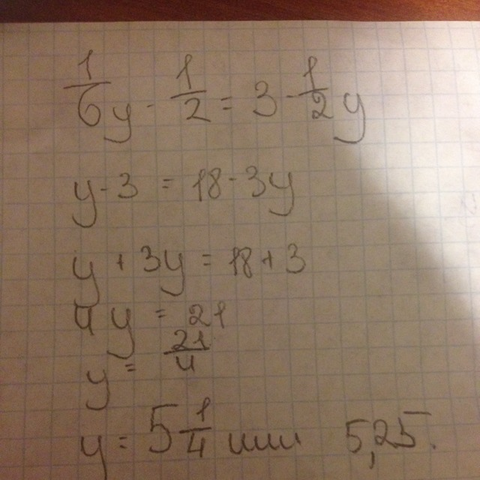 1/6 y - 1/2 = 3 - 1/2 y
y - 3 = 18 - 3y
y + 3y = 18 + 3
4y = 21
y = 21/4
y = 5 1/4 или 5,25.